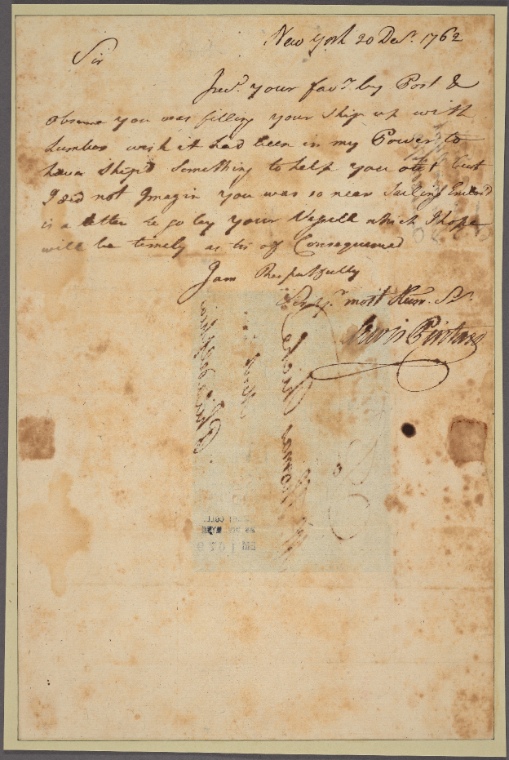 New York 20 Decr. 1762
Sir
Recd. your favr. by Post &
observe you was filling your Ship up with
Lumber wish it had been in my Power to
have Ship'd Something to help you out but
I did not Imagin you was so near Sailing Enclos'd
is a letter to go by your Vessell which I hope
will be timely as tis of Consequence
I am Respectfully
Sir yr. most Hum. St.
Lewis Pintard